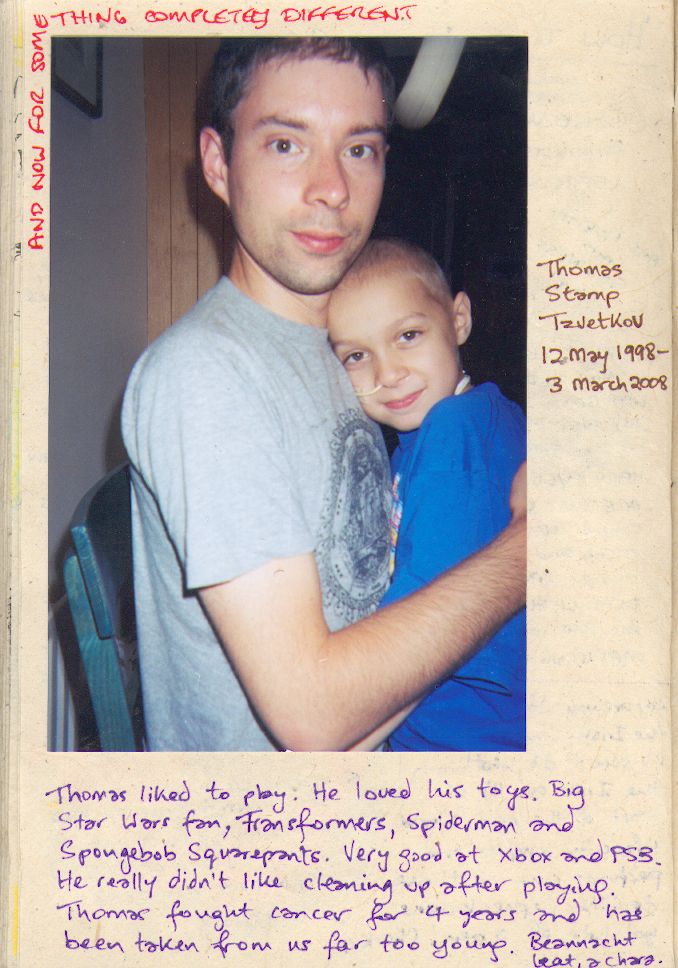 AND NOW FOR SOMETHING COMPLETELY DIFFERENT
Thomas
Stamp
Tzvetkov
12 May 1998-
3 March 2008
Thomas liked to play. He loved his toys. Big
Star Wars fan, Transformers, Spiderman and
Spongebob Squarepants. Very good at Xbox and PS3.
He really didn't like cleaning up after playing.
Thomas fought cancer for 4 years and has
been taken from us far too young. Beannacht
leat, a chara.